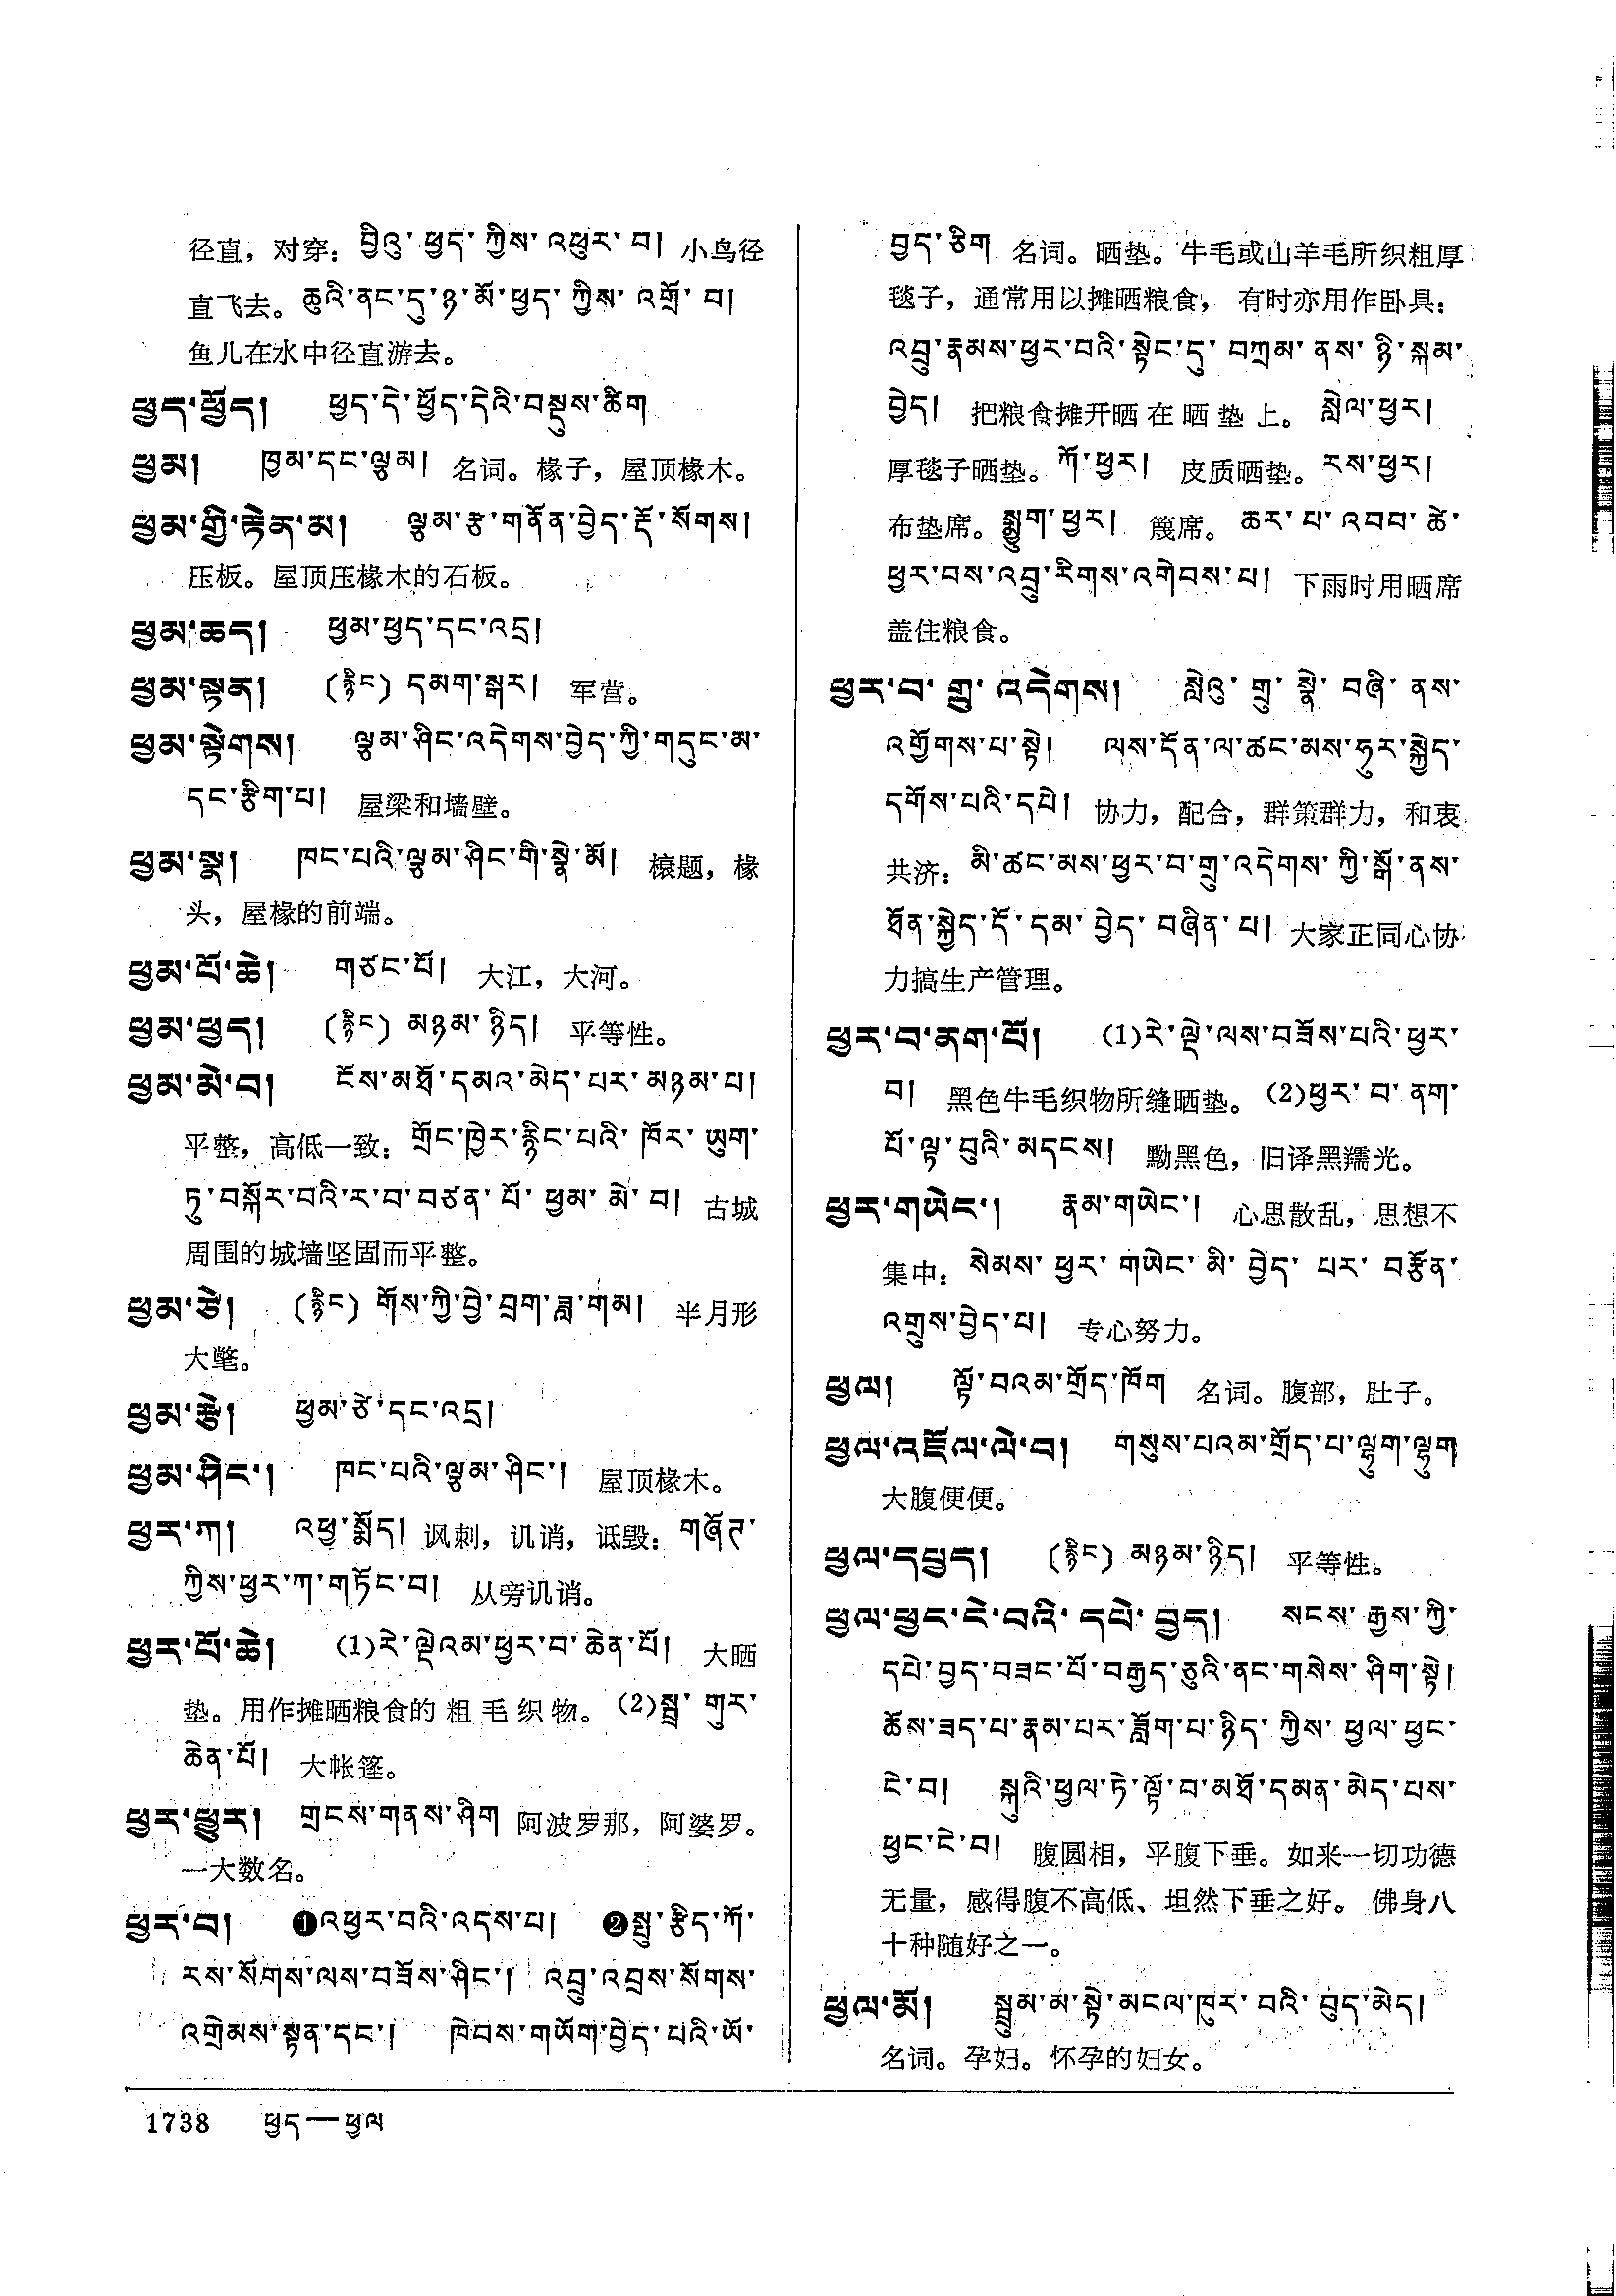 径直，对穿：བྱིའུ་ཕྱད་ཀྱིས་འཕུར་བ། 小鸟径
直飞去。ཆུའི་ནང་དུ་ཉ་མོ་ཕྱད་ཀྱིས་འགྲོ་བ།
鱼儿在水中径直游去。
ཕྱད་ཕྱོད། ཕྱད་དེ་ཕྱོད་དེའི་བསྡུས་ཚིག
ཕྱམ། ཁྱམ་དང་ལྕམ། 名词。椽子，屋顶椽木。
ཕྱམ་གྱི་རྟེན་མ། ལྕམ་རྩ་གནོན་བྱེད་རྡོ་སོགས།
压板。屋顶压椽木的石板。
ཕྱམ་ཆད། ཕྱམ་ཕྱད་དང་འདྲ།
ཕྱམ་སྟན། (རྙིང) དམག་སྒར། 军营。
ཕྱམ་སྟེགས། ལྕམ་ཤིང་འདེགས་བྱེད་ཀྱི་གདུང་མ་
དང་རྩིག་པ། 屋梁和墙壁。
ཕྱམ་སྣ། ཁང་པའི་ལྕམ་ཤིང་གི་སྣེ་མོ། 榱题，椽
头，屋椽的前端。
ཕྱམ་པོ་ཆེ། གཙང་པོ། 大江，大河。
ཕྱམ་ཕྱད། (རྙིང) མཉམ་ཉིད། 平等性。
ཕྱམ་མེ་བ། ངོས་མཐོ་དམའ་མེད་པར་མཉམ་པ།
平整，高低一致：གྲོང་ཁྱེར་རྙིང་པའི་ཁོར་ཡུག་
ཏུ་བསྐོར་བའི་ར་བ་བཙན་པོ་ཕྱམ་མེ་བ། 古城
周围的城墙坚固而平整。
ཕྱམ་ཙེ། (རྙིང) གོས་ཀྱི་བྱེ་བྲག་ཟླ་གམ། 半月形
大氅。
ཕྱམ་རྩེ། ཕྱམ་ཙེ་དང་འདྲ།
ཕྱམ་ཤིང་། ཁང་པའི་ལྕམ་ཤིང་། 屋顶椽木。
ཕྱར་ཀ། འཕྱ་སྨོད། 讽刺，讥诮，诋毁：གཞོཊ་
ཀྱིས་ཕྱར་ཀ་གཏོང་བ། 从旁讥诮。
ཕྱར་པོ་ཆེ། (1)རེ་ལྡེའམ་ཕྱར་བ་ཆེན་པོ། 大晒
垫。用作摊晒粮食的粗毛织物。(2)སྦྲ་གུར་
ཆེན་པོ། 大帐篷。
ཕྱར་ཕྱུར། གྲངས་གནས་ཤིག 阿波罗那，阿婆罗。
一大数名。
ཕྱར་བ། ❶འཕྱར་བའི་འདས་པ། ❷སྤུ་རྩིད་ཀོ་
རས་སོགས་ལས་བཟོས་ཤིང་། འབྲུ་འབྲས་སོགས་
འགྲེམས་སྟན་དང་། ཁེབས་གཡོག་བྱེད་པའི་ཡོ་
བྱད་ཅིག 名词。晒垫。牛毛或山羊毛所织粗厚
毯子，通常用以摊晒粮食，有时亦用作卧具：
འབྲུ་རྣམས་ཕྱར་བའི་སྟེང་དུ་བཀྲམ་ནས་ཉི་སྐམ་
བྱེད། 把粮食摊开晒在晒垫上。སླེལ་ཕྱར།
厚毯子晒垫。ཀོ་ཕྱར། 皮质晒垫。རས་ཕྱར།
布垫席。སྨྱུག་ཕྱར། 篾席。ཆར་པ་འབབ་ཚེ་
ཕྱར་བས་འབྲུ་རིགས་འགེབས་པ། 下雨时用晒席
盖住粮食。
ཕྱར་བ་གྲུ་འདེགས། སླེའུ་གྲུ་སྣེ་བཞི་ནས་
འགྱོགས་པ་སྟེ། ལས་དོན་ལ་ཚང་མས་ཧུར་སྐྱེད་
དགོས་པའི་དཔེ། 协力，配合，群策群力，和衷
共济：མི་ཚང་མས་ཕྱར་བ་གྲུ་འདེགས་ཀྱི་སྒོ་ནས་
ཐོན་སྐྱེད་དོ་དམ་བྱེད་བཞིན་པ། 大家正同心协
力搞生产管理。
ཕྱར་བ་ནག་པོ། (1)རེ་ལྡེ་ལས་བཟོས་པའི་ཕྱར་
བ། 黑色牛毛织物所缝晒垫。(2)ཕྱར་བ་ནག་
པོ་ལྟ་བུའི་མདངས། 黝黑色，旧译黑羺光。
ཕྱར་གཡེང་། རྣམ་གཡེང་། 心思散乱，思想不
集中：སེམས་ཕྱར་གཡེང་མི་བྱེད་པར་བརྩོན་
འགྲུས་བྱེད་པ། 专心努力。
ཕྱལ། ལྟོ་བའམ་གྲོད་ཁོག 名词。腹部，肚子。
ཕྱལ་འཇོལ་ལེ་བ། གསུས་པའམ་གྲོད་པ་ལྷུག་ལྷུག
大腹便便。
ཕྱལ་དཔྱད། (རྙིང) མཉམ་ཉིད། 平等性。
ཕྱལ་ཕྱང་ངེ་བའི་དཔེ་བྱད། སངས་རྒྱས་ཀྱི་
དཔེ་བྱད་བཟང་པོ་བརྒྱད་ཅུའི་ནང་གསེས་ཤིག་སྟེ།
ཆོས་ཟད་པ་རྣམ་པར་ཟློག་པ་ཉིད་ཀྱིས་ཕྱལ་ཕྱང་
ངེ་བ། སྐུའི་ཕྱལ་ཏེ་ལྟོ་བ་མཐོ་དམན་མེད་པས་
ཕྱང་ངེ་བ། 腹圆相，平腹下垂。如来一切功德
无量，感得腹不高低、坦然下垂之好。佛身八
十种随好之一。
ཕྱལ་མོ། སྦྲུམ་མ་སྟེ་མངལ་ཁུར་བའི་བུད་མེད།
名词。孕妇。怀孕的妇女。
1738 ཕྱད—ཕྱལ